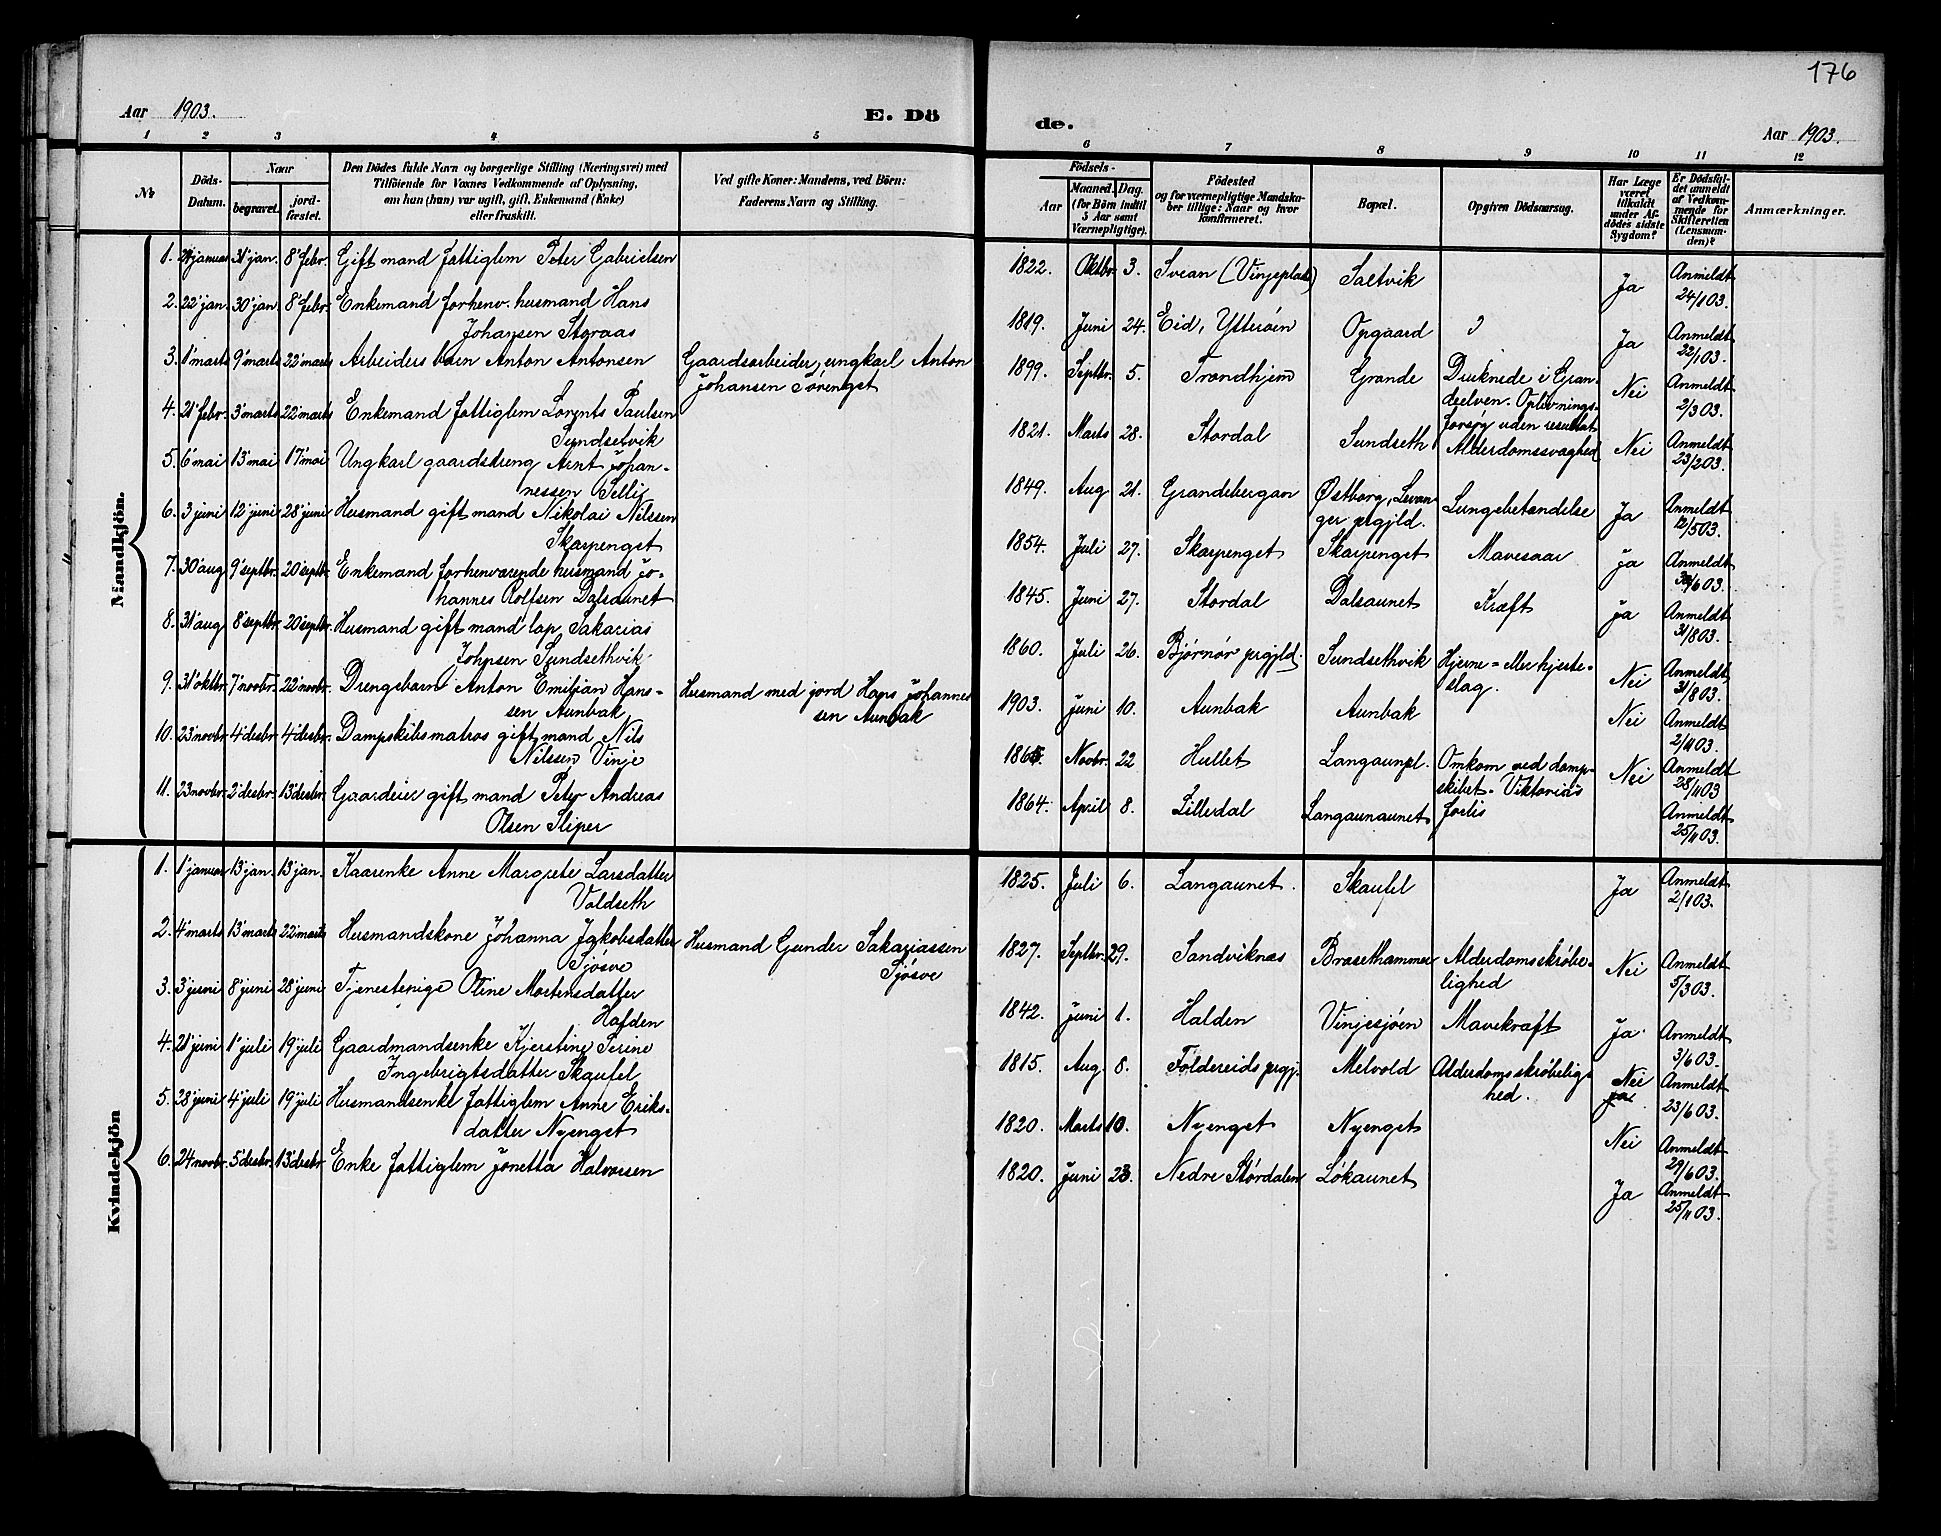 176
Aar 1903.
E. Dö
de.
Aar 1903.
1 2 3 4 5
6 7 8 9 10 11 12
No
Döds-Datum.
Naar
begravet. jord-fæstet.
Den Dödes fulde Navn og borgerlige Stilling (Næringsvei) med
Tilföiende for Voxnes Vedkommende af Oplysning,
om han (hun) var ugift, gift, Enkemand (Enke)
eller fraskilt.
Ved gifte Koner: Mandens, ved Börn:
Faderens Navn og Stilling.
Födsels-
Aar
Maaned. Dag.
(for Börn indtil
5 Aar samt
Værnepligtige).
Födested
og for værnepligtige Mandska-
ber tillige: Naar og hvor
konfirmeret.
Bopæl.
Opgiven Dödsaarsag.
Har Læge
været
tilkaldt
under Af-
dödes sidste
Sygdom?
Er Dödsfal-
det anmeldt
af Vedkom-
mende for
Skifteretten
(Lensman-
den)?
Anmærkninger.
Mandkjön.
1. januar 31' jan. 8' febr. Gift mand fattiglem Peter Gabrielsen
1822. Oktbr. 3. Svean (Vinjeplads) Saltvik Ja Anmeldt
24/1 03.
2. 22' jan. 30' jan 8' febr. Enkemand forhenv. husmand Hans
Johansen Storaas
1819. Juni 24. Eid, Ytterøen Opgaard Ja Anmeldt
22/1 03.
3. 1' marts 9' marts 22' marts Arbeiders barn Anton Antonsen Gaardsarbeider, ungkarl Anton
Johansen
1899. Septbr. 5. Trondhjem Grande Druknede i Gran-
deelven. Oplivnings-
forsøg uden resultat
Nei Anmeldt
2/3 03.
4. 21' febr. 3' marts 22' marts Enkemand fattiglem Lornts Paulsen
Sundsetvik
1821. Marts 28. Stordal Sundseth Alderdomssvaghed Nei Anmeldt
23/2 03.
5. 6' mai 13' mai 17' mai Ungkarl gaardsdreng Arnt Johan-
nessen Selli
1849. Aug 21. Grandebergan Østborg, Levan-
ger prgjld. Lungebetændelse Ja Anmeldt
12/5 03.
6. 3' juni 12' juni 28' juni Husmand gift mand Nikolai Nilssen
Skarpenget
1854. Juli 27. Skarpenget Skarpenget Mavesaar ja Anmeldt
/6 03.
7. 30' aug 9' septbr. 20' septbr. Enkemand forhenværende husmand Jo-
hannes Rolfsen Dalsaunet
1845. Juni 27. Stordal Dalsaunet Kræft ja Anmeldt
31/8 03.
8. 31' aug 8' septbr. 20' septbr. Husmand gift mand lap Sakarias
Johnsen Sundsethvik
1860. Juli 26. Bjørnør prgjld. Sundsethvik Hjerne- eller hjerte-
slag. Nei Anmeldt
31/8 03.
9. 31' oktbr. 7' novbr. 22' novbr. Drengebarn Anton Emilian Hans-
sen Aunbak
Husmand med jord Hans Johannes
sen Aunbak
1903. Juni 10. Aunbak Aunbak Nei Anmeldt
2/11 03.
10. 23' novbr. 4' desbr. 4' desbr. Dampskibsmatros gift mand Nils
Nilssen Vinje
1865. Novbr. 22 Hullet Langaunpl. Omkom ved damp-
skibet "Viktorias
forlis
Nei Anmeldt
28/11 03
11. 23' novbr. 2' desbr. 13' desbr. Gaardeier gift mand Peter Andreas
Olsen Sliper
1864. April 8. Lilledal Langaunaunet Anmeldt
25/11 03.
Kvindekjön
1. 1' januar 13' jan. 13' jan. Kaarenke Anne Margrete Larsdatter
Voldseth
1825. Juli 6. Langaunet. Skaufel Ja Anmeldt
2/1 03.
2. 4' marts 13' marts 22' marts Husmandskone Johanna Jakobsdatter
Sjøsve
Husmand Gunder Sakariassen
Sjøsve
1827. Septbr. 29. Sandviknæs Brasethammer Alderdomsskrøbe-
lighed Nei Anmeldt
5/3 03.
3. 3' juni 8' juni 28' juni Tjenestepige Oline Mortensdatter
Halden
1842. Juni 1. Halden Vinjesjøen Mavekræft Ja. Anmeldt
3/6 03.
4. 21' juni 1' juli 19' juli Gaardmandsenke Kjerstine Serine
Ingebrigtsdatter Skaufel
1815. Aug 8. Foldereids prgj. Melvold Alderdomsskrøbelig-
hed. Nei
ja Anmeldt
23/6 03.
5. 28' juni 4' juli 19' juli Husmandsenke fattiglem Anne Eriks-
datter Nyenget
1820. Marts 10. Nyenget Nyenget Nei Anmeldt
29/6 03.
6. 24' novbr. 5' desbr. 13' desbr Enke fattiglem Jonetta Halvorsen
1820. Juni 23. Nedre Stördalen Løkaunet Ja Anmeldt
25/11 03.